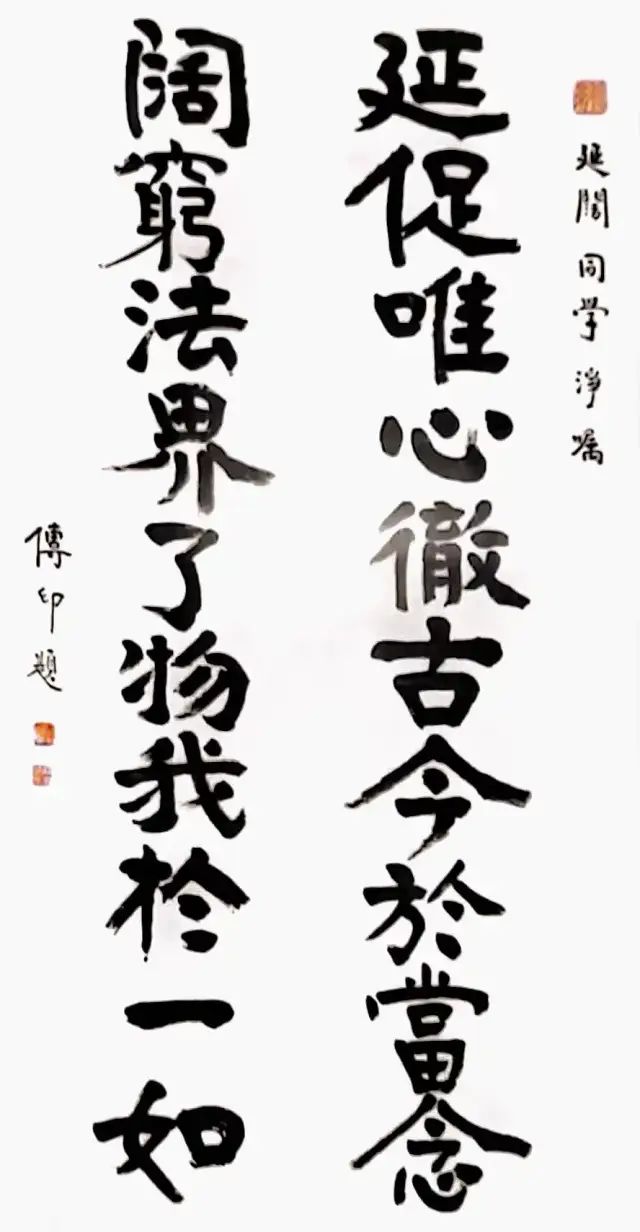 延闊同学淨嘱
延促唯心徹古今於當念
闊窮法界了物我於一如
傳印題